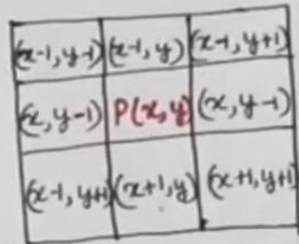 (x-1, y-1) (x-1, y) (x-1, y+1)
(x, y-1) P(x, y) (x, y-1)
(x-1, y+1) (x+1, y) (x+1, y+1)